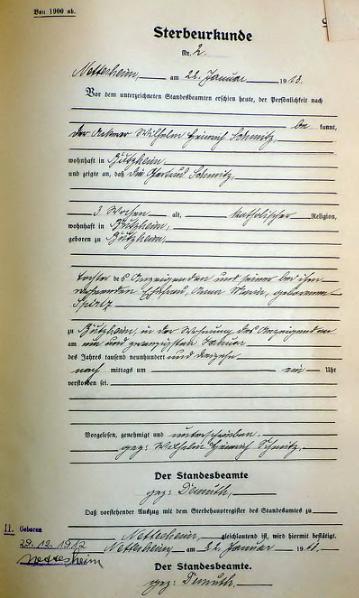 Bau 1900 ab.
Sterbeurkunde
Nr. 2
am 22. Januar 1913.
Vor dem unterzeichneten Standesbeamten erschien heute, der Persönlichkeit nach
be kannt,
der Ackerer Wilhelm Heinrich Schmitz,
wohnhaft in Bützheim,
und zeigte an, daß die Gertrud Schmitz,
3 Wochen alt, katholischer Religion,
wohnhaft in Bützheim,
geboren zu Bützheim,
Tochter des Anzeigenden und seiner bei ihm
Ehefrau, Anna Maria, geborenen
zu Bützheim, in der Wohnung des Anzeigenden
am ein und zwanzigsten Januar
des Jahres tausend neunhundert und dreizehn
nach mittags um ein Uhr
verstorben sei.
Vorgelesen, genehmigt und unterschrieben.
gez: Wilhelm Heinrich Schmitz.
Der Standesbeamte
gez: Demuth.
Daß vorstehender Auszug mit dem Sterbehauptregister des Standesamts zu
gleichlautend ist, wird hiermit bestätigt.
am 22. Januar 1913.
Der Standesbeamte.
gez: Demuth.
II. Geboren
29.12.1912